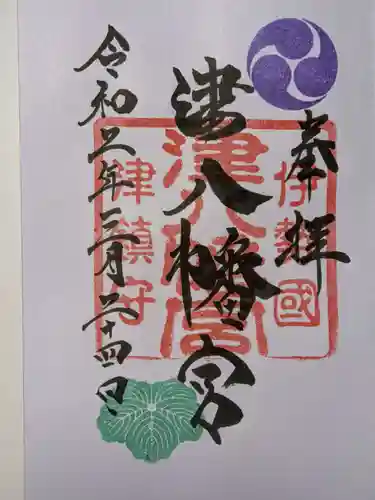 奉拝
伊勢國
津八幡宮
津八幡宮
津鎮守
令和五年三月二十四日